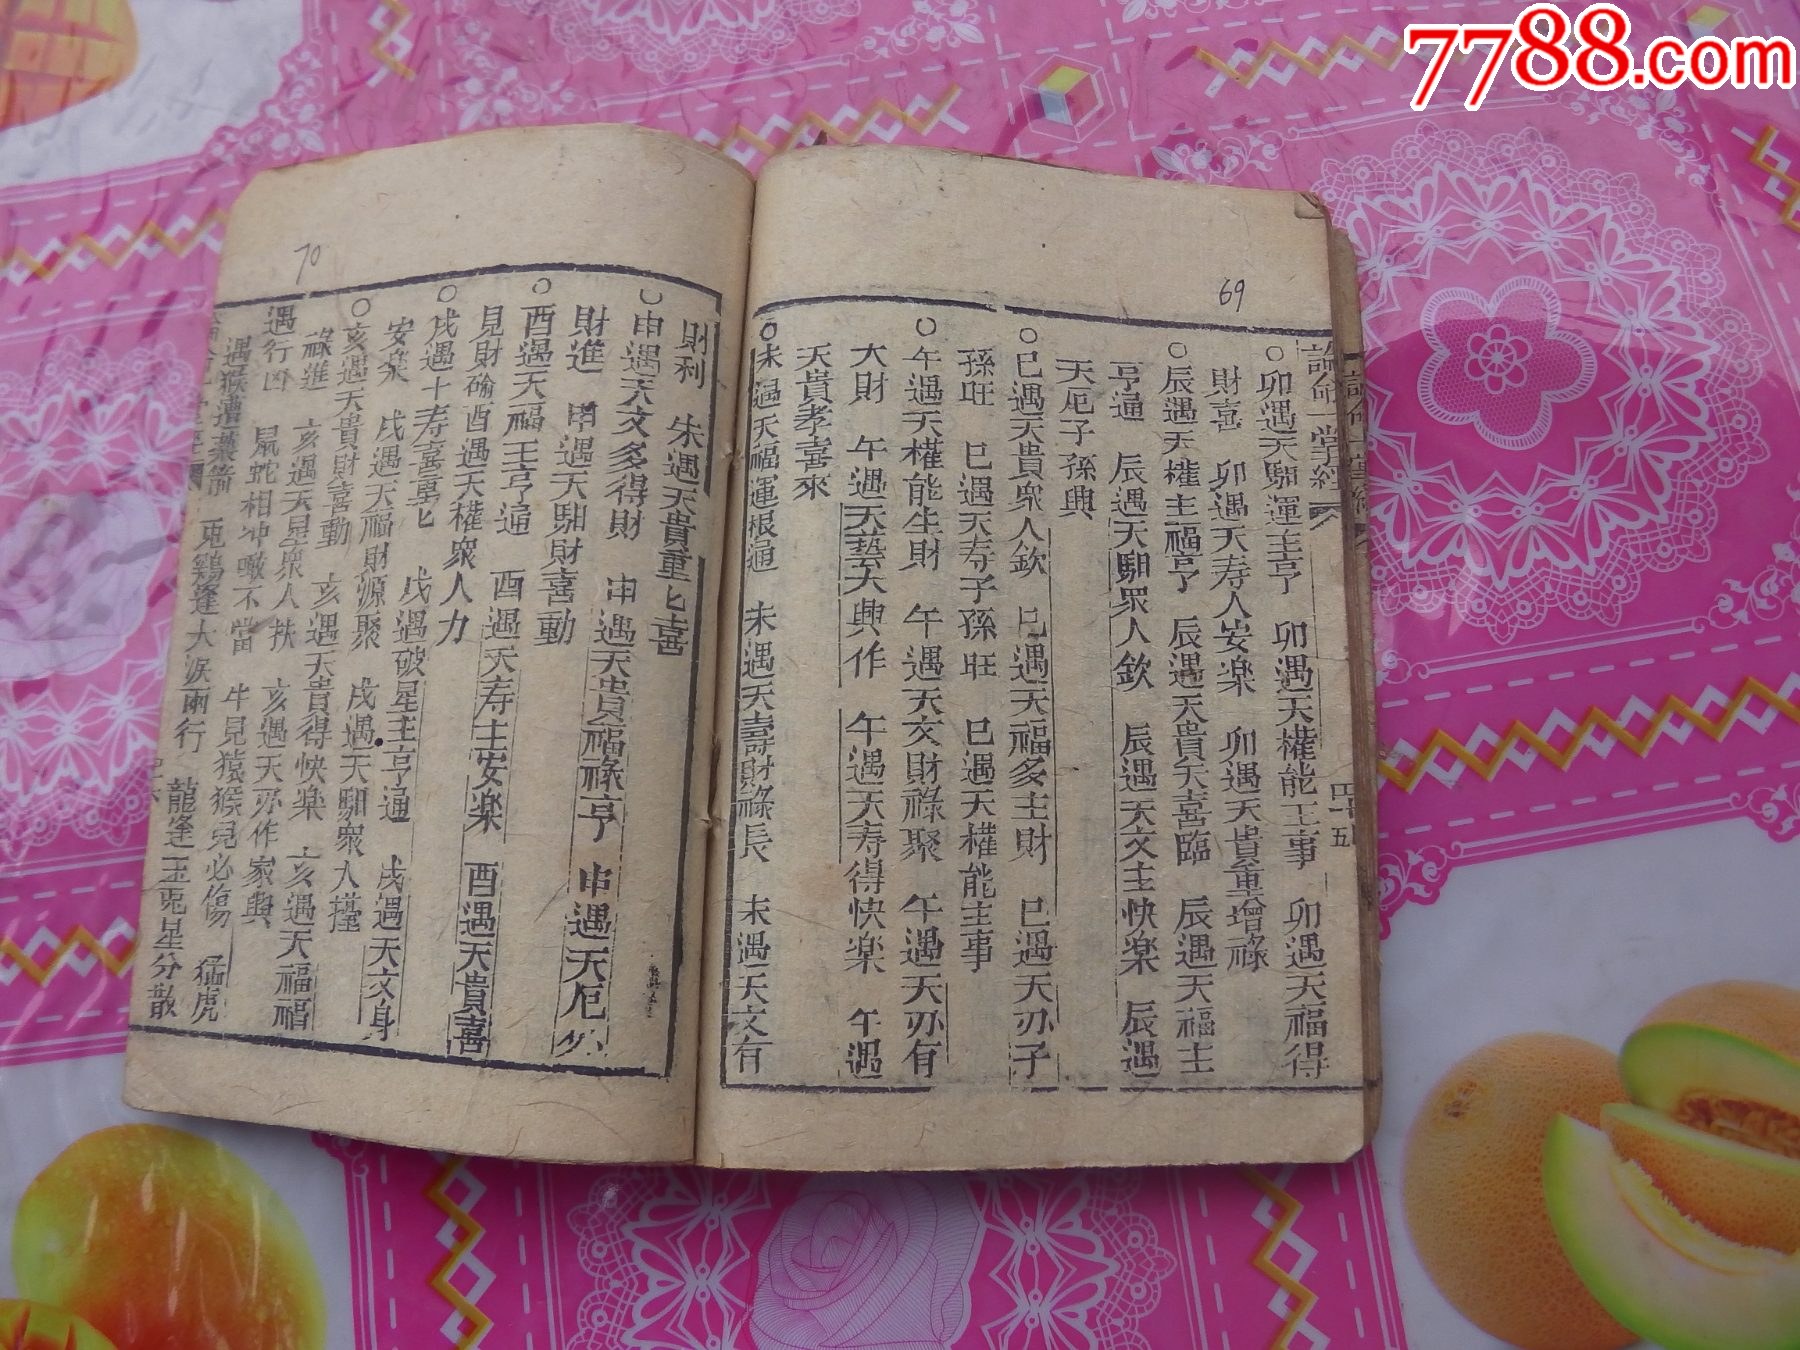 7788.com
69
論命一掌經 四十五
○卯遇天馹運主亨 卯遇天權能主事 卯遇天福得
財喜 卯遇天寿人安楽 卯遇天貴重增祿
○辰遇天權主福亨 辰遇天貴矣喜臨 辰遇天福主
亨通 辰遇天馹眾人欽 辰遇天文主快楽 辰遇
天厄子孫興
○巳遇天貴眾人欽 巳遇天福多主財 巳遇天刃子
孫旺 巳遇天寿子孫旺 巳遇天權能主事
○午遇天權能生財 午遇天文財祿聚 午遇天刃有
大財 午遇天藝大興作 午遇天寿得快楽 午遇
天貴孝喜來
○未遇天福運根通 未遇天壽財祿長 未遇天文有
70
財利 未遇天貴重匕喜
○申遇天文多得財 申遇天貴福祿亨 申遇天厄
財進 申遇天馹財喜動
○酉遇天福王亨通 酉遇天寿主安楽 酉遇天貴喜
見財 酉遇天權眾人力
○戌遇十寿喜重匕 戌遇破星主亨通 戌遇天文身
安楽 戌遇天福財源聚 戌遇天馹眾人擡
○亥遇天貴財喜動 亥遇天貴得快楽 亥遇天福福
祿進 亥遇天星眾人扶 亥遇天刃作家興
遇行凶 鼠蛇相冲噉不當 牛見猿猴兒必傷 猛虎
遇猴遭搭藥箭 兎鷄逢犬淚兩行 龍逢玉兎星分散